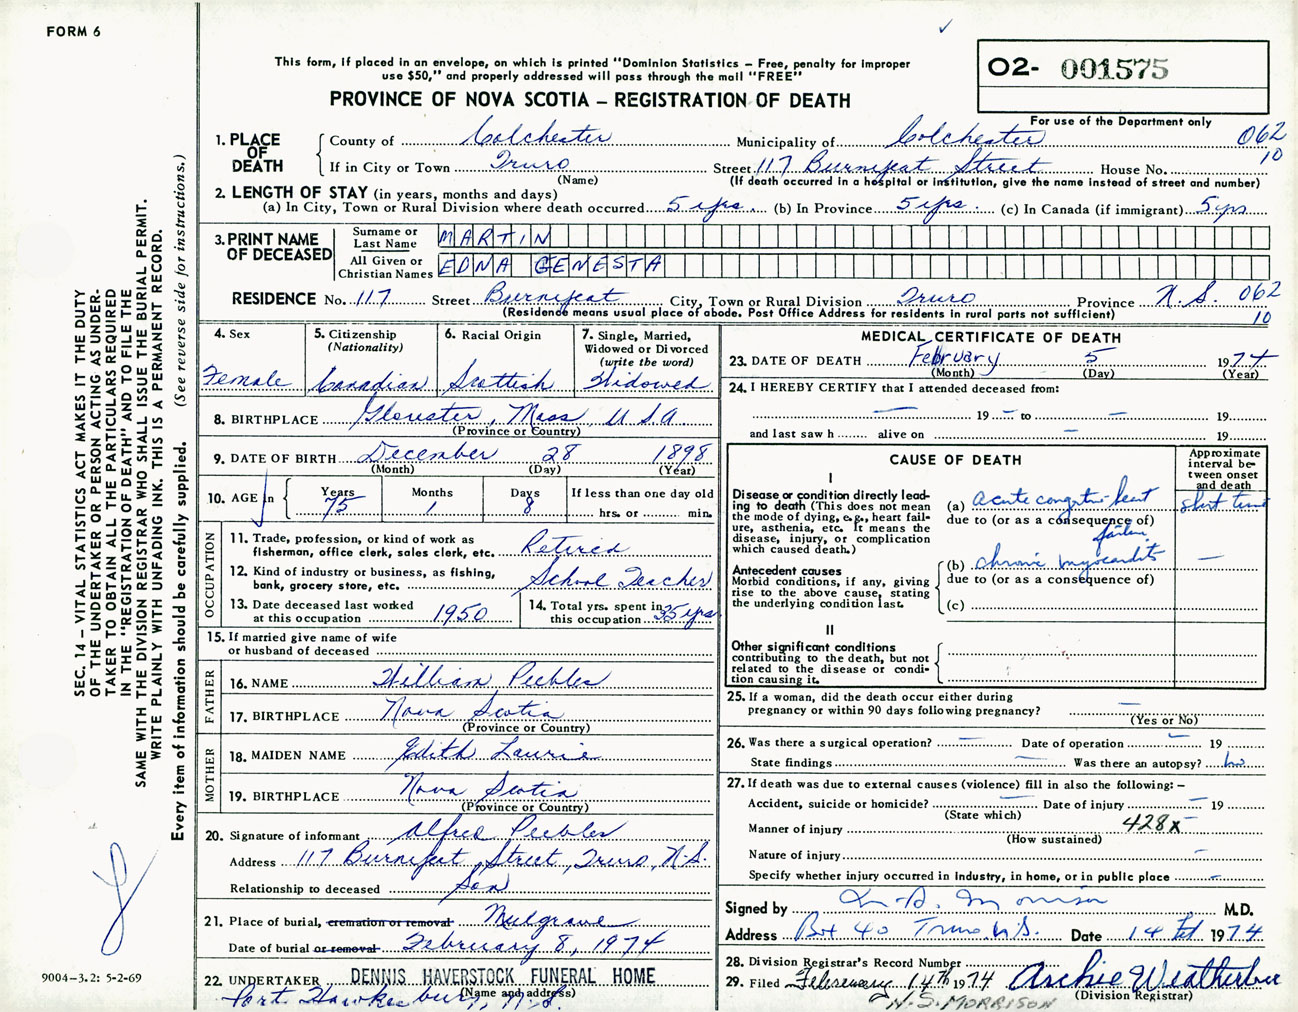 FORM 6
This form, if placed in an envelope, on which is printed "Dominion Statistics – Free, penalty for improper
use $50," and properly addressed will pass through the mail "FREE"
PROVINCE OF NOVA SCOTIA – REGISTRATION OF DEATH
O2- 001575
For use of the Department only
062
10
1. PLACE OF DEATH County of Colchester Municipality of Colchester
If in City or Town Truro Street 117 Burnyeat Street House No.
(Name) (If death occurred in a hospital or institution, give the name instead of street and number)
2. LENGTH OF STAY (in years, months and days)
(a) In City, Town or Rural Division where death occurred 5 yrs. (b) In Province 5 yrs (c) In Canada (if immigrant) 5 yrs
3. PRINT NAME OF DECEASED
Surname or Last Name MARTIN
All Given or Christian Names EDNA GENESTA
RESIDENCE No. 117 Street Burnyeat City, Town or Rural Division Truro Province N.S. 062
(Residence means usual place of abode. Post Office Address for residents in rural parts not sufficient) 10
4. Sex Female
5. Citizenship (Nationality) Canadian
6. Racial Origin Scottish
7. Single, Married, Widowed or Divorced (write the word) Widowed
8. BIRTHPLACE Glouester, Mass, U.S.A
(Province or Country)
9. DATE OF BIRTH December 28 1898
(Month) (Day) (Year)
10. AGE in Years 75 Months 1 Days 8 If less than one day old
hrs. or min.
OCCUPATION
11. Trade, profession, or kind of work as
fisherman, office clerk, sales clerk, etc. Retired
12. Kind of industry or business, as fishing,
bank, grocery store, etc. School Teacher
13. Date deceased last worked
at this occupation 1950
14. Total yrs. spent in
this occupation 35 yrs
15. If married give name of wife
or husband of deceased
FATHER
16. NAME William Peebles
17. BIRTHPLACE Nova Scotia
(Province or Country)
MOTHER
18. MAIDEN NAME Edith Laurie
19. BIRTHPLACE Nova Scotia
(Province or Country)
20. Signature of informant Alfred Peebles
Address 117 Burnyeat Street, Truro, N.S.
Relationship to deceased Son
21. Place of burial, cremation or removal Mulgrave
Date of burial or removal February 8, 1974
22. UNDERTAKER DENNIS HAVERSTOCK FUNERAL HOME
(Name and address)
Port Hawkesbury, N.S.
MEDICAL CERTIFICATE OF DEATH
23. DATE OF DEATH February 5 1974
(Month) (Day) (Year)
24. I HEREBY CERTIFY that I attended deceased from:
— 19 – to – 19
and last saw h alive on – 19
CAUSE OF DEATH
Approximate interval between onset and death
I
Disease or condition directly leading to death (This does not mean
the mode of dying, e.g., heart failure, asthenia, etc. It means the
disease, injury, or complication
which caused death.)
(a) acute congestive heart failure short time
due to (or as a consequence of)
Antecedent causes
Morbid conditions, if any, giving
rise to the above cause, stating
the underlying condition last.
(b) chronic myocarditis –
due to (or as a consequence of)
(c)
II
Other significant conditions
contributing to the death, but not
related to the disease or condition causing it.
25. If a woman, did the death occur either during
pregnancy or within 90 days following pregnancy? –
(Yes or No)
26. Was there a surgical operation? – Date of operation – 19
State findings – Was there an autopsy? no
27. If death was due to external causes (violence) fill in also the following: –
Accident, suicide or homicide? – Date of injury – 19
(State which)
Manner of injury 428x –
(How sustained)
Nature of injury –
Specify whether injury occurred in industry, in home, or in public place –
Signed by Morrison M.D.
Address Box 40 Truro N.S. Date 14 Feb 1974
28. Division Registrar's Record Number
29. Filed February 14th 1974 Archie Weatherbee
(Division Registrar)
N. S. MORRISON
SEC. 14 – VITAL STATISTICS ACT MAKES IT THE DUTY
OF THE UNDERTAKER OR PERSON ACTING AS UNDER-
TAKER TO OBTAIN ALL THE PARTICULARS REQUIRED
IN THE "REGISTRATION OF DEATH" AND TO FILE THE
SAME WITH THE DIVISION REGISTRAR WHO SHALL ISSUE THE BURIAL PERMIT.
WRITE PLAINLY WITH UNFADING INK. THIS IS A PERMANENT RECORD.
Every item of information should be carefully supplied. (See reverse side for instructions.)
9004-3.2: 5-2-69